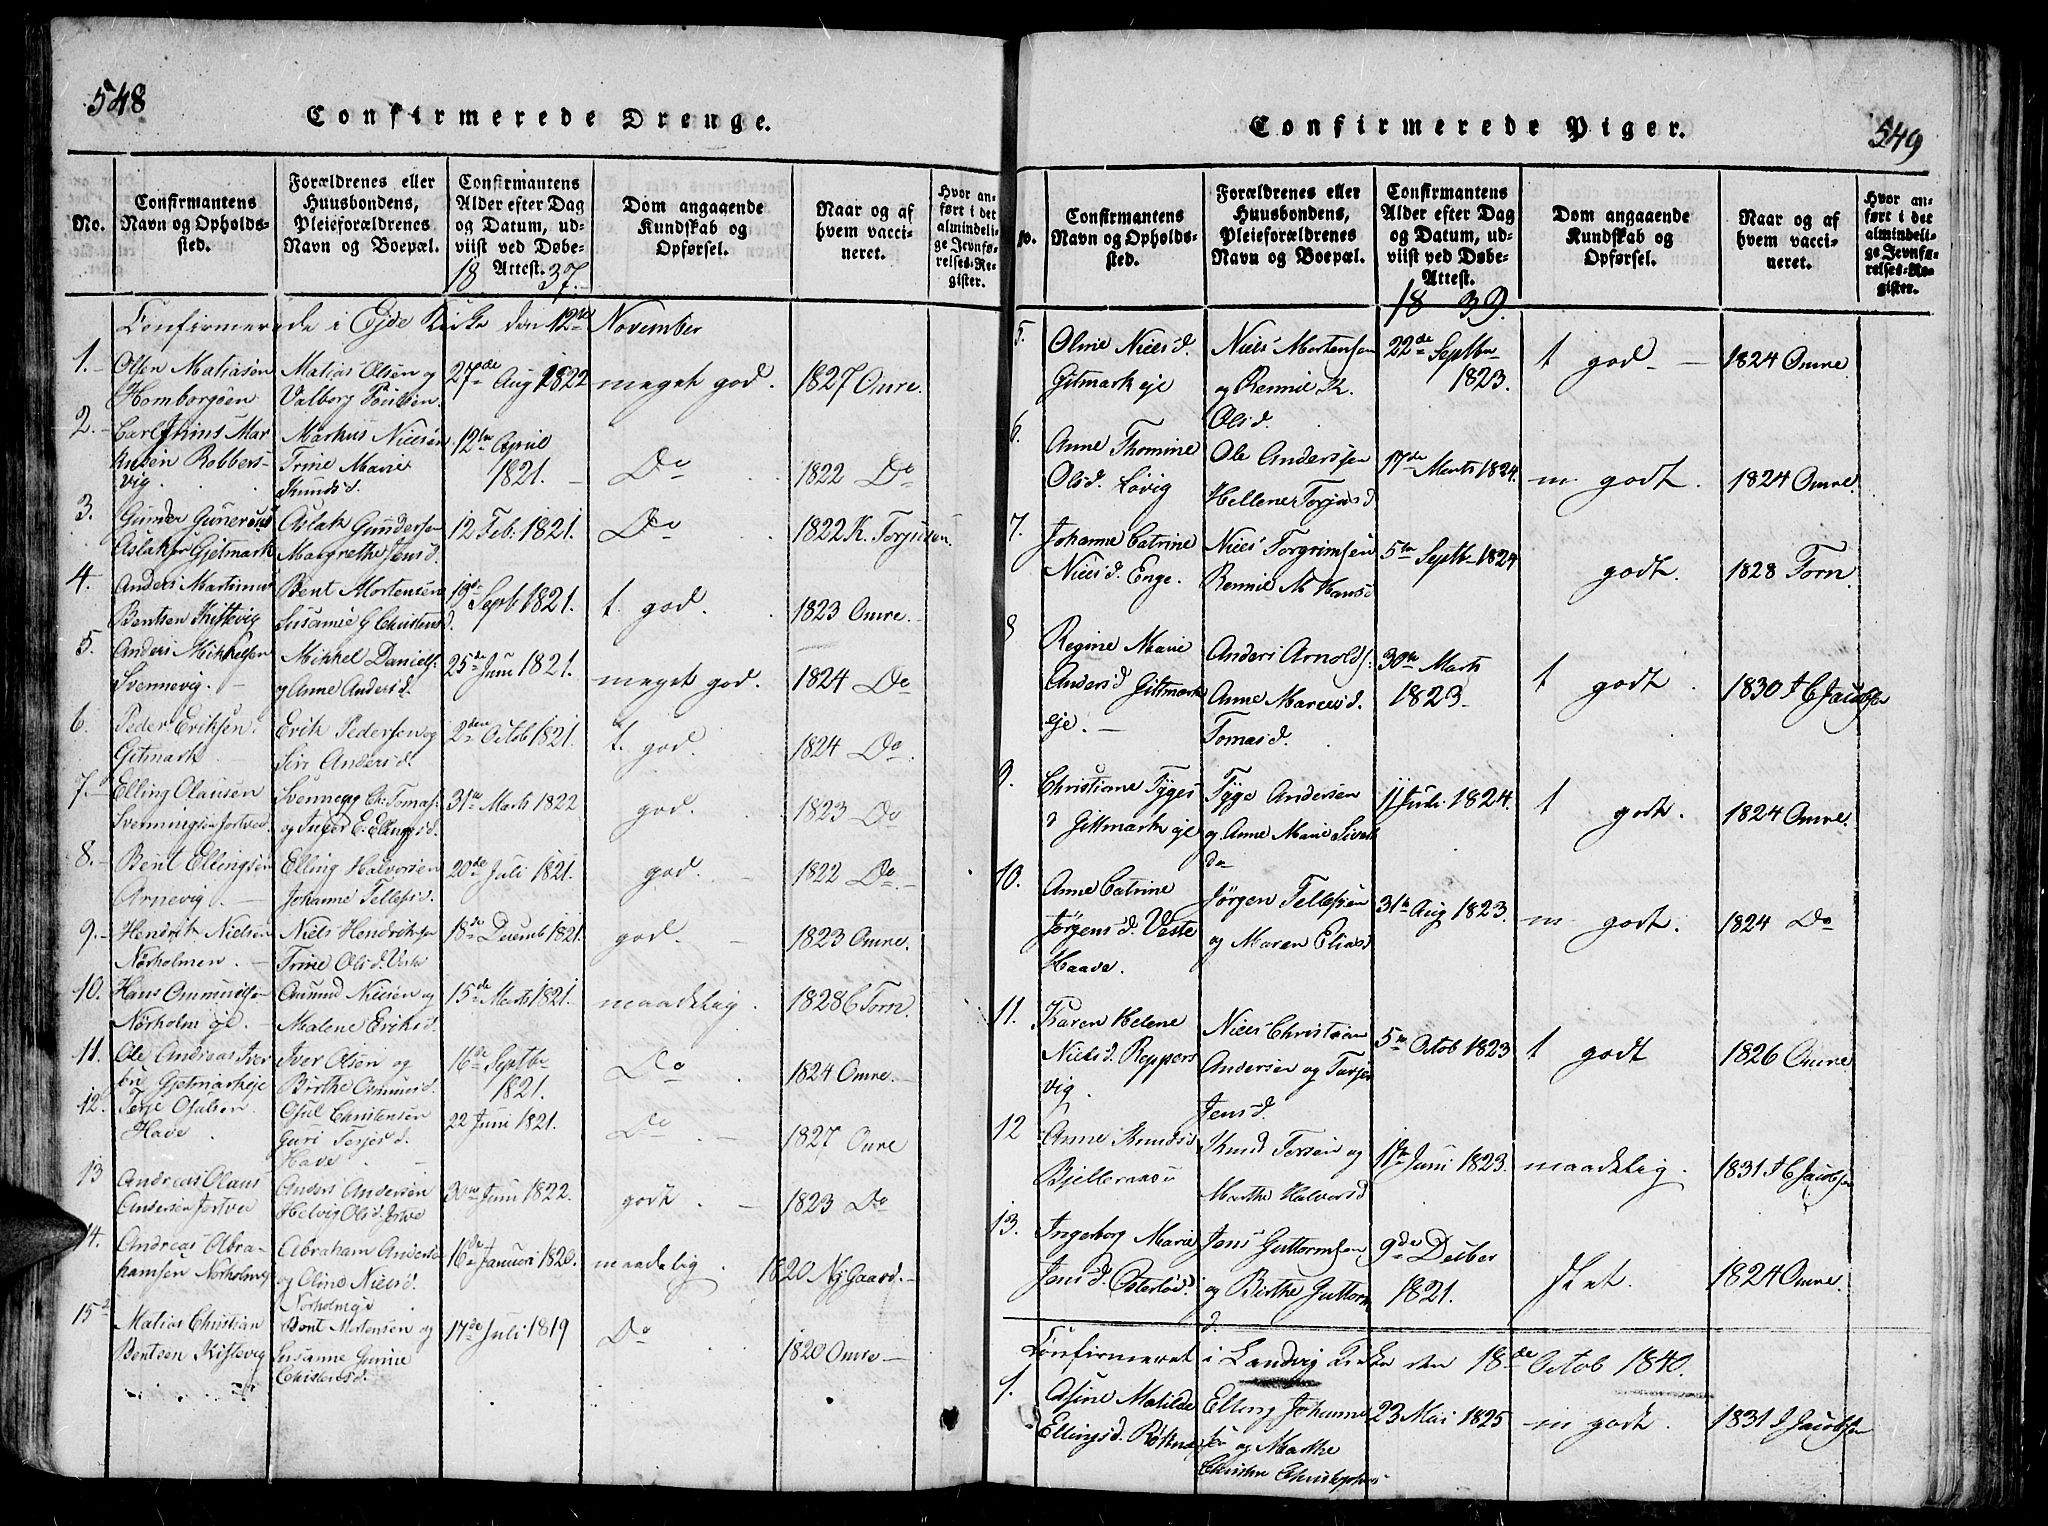 548
Confirmerede Drenge.
No.
Confirmantens Navn og Opholdssted.
Forældrenes eller Huusbondens, Pleieforældrenes Navn og Boepæl.
Confirmantens Alder efter Dag og Datum, udviist ved Døbe-Attest.
18 37.
Dom angaaende Kundskab og Opførsel.
Naar og af hvem vaccineret.
Hvor anført i det almindelige Jevnførelses-Register.
Confirmerede i Eide Kirke den 12te November
1. Olsen Matiasen Homborgøen
Matias Olsen og Valborg
27de Aug 1822
meget god.
1827 Omre.
2. Carl Jhins Markusen Robbersvig.
Markus Nielsen Trine Marie Knudsd.
12te April 1821.
Do
1822 Do
3. Gunder Gunerius Aslaksen Gjetmark
Aslak Gundersen Margrethe Jensd.
12 Feb: 1821.
Do
1822 K. Torjusen.
4. Anders Martinus Bentsen Kiftevig
Bent Mortensen Susanne G Christensd.
19de Septb 1821.
t. god.
1823 Omre.
5. Anders Mikkelsen Svennevig.
Mikkel Daniels: og Anne Andersd.
25de Juni 1821.
meget god.
1824 Do
6. Peder Eriksen Gitmark
Erik Pedersen og Siri Andersd.
2den Octob 1821.
t. god.
1824 Do.
7. Elling Olausen Svenningsen Jortved
Svennung Ch. Tomas: og Inger E. Ellingsd.
31te Marts 1822
god.
1823 Do
8. Bent Ellingsen Arnevig.
Elling Halvorsen Johanne Tellefsd.
20de Juli 1821.
god.
1822 Do
9. Hendrik Nielsen Nørholmen.
Niels Hendriksen Trine Olsd.
18de Decemb 1821.
god.
1823 Omre.
10. Hans Ommundsen Nørholm eje.
Omund Nielsen og Malene Eriksd.
15de Marts 1821.
maadelig.
1828 C Torn.
11. Ole Andreas Iversen Gjetmarkeje
Iver Olsen og Birthe Ommunsd.
16de Septbr 1821.
Do
1824 Omre.
12. Terje Osulsen Have.
Osul Christensen Guri Terjesd. Have
22 Juni 1821.
Do
1827 Omre
13 Andreas Olaus Andersen Jortved
Anders Andersen Helvig Olsd. Jortve
30te Juni 1822.
godt.
1823 Do
14. Andreas Abrahamsen Norholmeje
Abraham Andersen og Oline Nielsd. Norholmeje
16de Januari 1820.
maadelig.
1820 Nÿ Gaard.
15 Matias Christian Bentsen Kiftevig
Bent Mortensen og Susanne Gunine Christensd.
17de Juli 1819
Do
1820 Omre
549
Confirmerede Piger.
No.
Confirmantens Navn og Opholdssted.
Forældrenes eller Huusbondens, Pleieforældrenes Navn og Boepæl.
Confirmantens Alder efter Dag og Datum, udviist ved Døbe-Attest.
18 39.
Dom angaaende Kundskab og Opførsel.
Naar og af hvem vaccineret.
Hvor anført i det almindelige Jevnførelses-Register.
5. Oline Nielsd. Gitmark eje
Niels Mortensen og Rennie K. Olsd.
22de Septbr 1823.
t god
1824 Omre.
6. Anne Thomine Olsd. Løvig
Ole Anderssen Hellene Torjusd
17de Marts 1824.
m godt.
1824 Omre.
7. Johanne Catrine Nielsd. Enge.
Niels Torgrimsen Rennie M Hansd
5te Septbr 1824
godt.
1828 Torn
8 Regine Marie Andersd Gitmark eje.
Anders Arnolds: Anne Maries d. Tomasd.
30te Marts 1823.
t godt.
1830 J C Jacobsen
9. Christiane Tygesd Gittmark eje
Tyge Andersen og Anne Marie
11 Juli 1824.
t godt.
1824 Omre.
10. Anne Catrine Jørgensd. Veste Haave.
Jørgen Tellefsen og Maren Eliasd
31te Aug 1823.
m godt.
1824 Do
11. Karen Helene Nielsd. Reppersvig.
Niels Christian Andersen og Jensd.
5te Octob 1823
t godt
1826 Omre
12 Anne Knudsd Bjelleraas
Knud Terjsen og Marthe Halvorsd
17de Juni 1823.
maadelig.
1831 J C Jacobsen
13. Ingeborg Marie Jensd. Osterløe
Jens Guttormsen og Birthe Guttormd.
9de Decber 1821.
slet.
1824 Omre.
Confirmeret i Landvig Kirke den 18de Octob 1840.
1. Asine Matilde Ellingsd. Røknæs
Elling Johannesen og Marthe Christine Christophers
23 Mai 1825
m godt.
1831 J Jacobsen